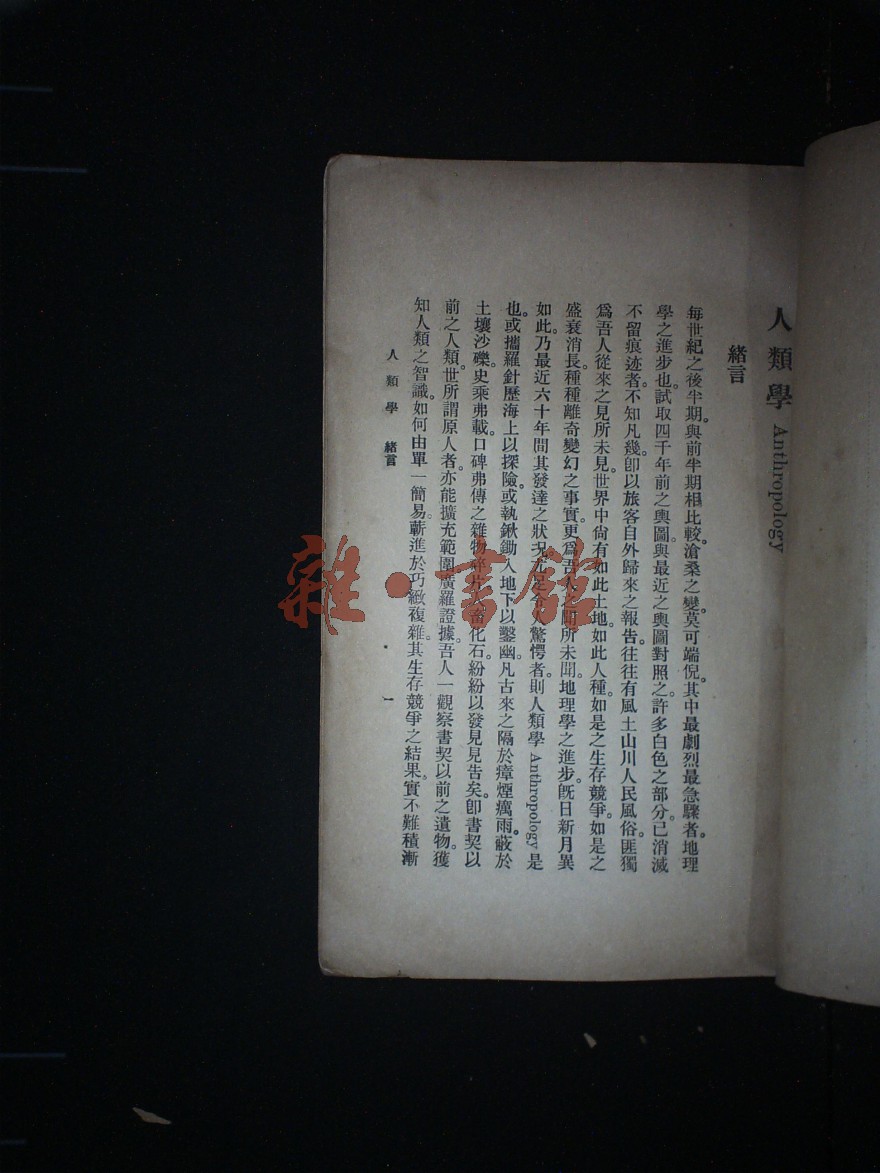 人類學 Anthropology
緒言
每世紀之後半期。與前半期相比較。滄桑之變。莫可端倪。其中最劇烈最急驟者。地理
學之進步也。試取四千年前之輿圖。與最近之輿圖對照之。許多白色之部分。已消滅
不留痕迹者。不知凡幾。卽以旅客自外歸來之報告。往往有風土山川人民風俗。匪獨
爲吾人從來之見所未見。世界中尙有如此土地。如此人種。如是之生存競爭。如是之
盛衰消長。種種離奇變幻之事實。更爲吾人之聞所未聞。地理學之進步。旣日新月異
如此。乃最近六十年間。其發達之狀况。尤足令人驚愕者。則人類學 Anthropology 是
也。或攜羅針歷海上以探險。或執鍬鋤入地下以鑿幽。凡古來之隔於瘴煙癘雨。蔽於
土壤沙礫。史乘弗載。口碑弗傳之雜物碎片人畜化石。紛紛以發見見告矣。卽書契以
前之人類。世所謂原人者。亦能擴充範圍。廣羅證據。吾人一觀察書契以前之遺物。獲
知人類之智識。如何由單一簡易。蘄進於巧緻複雜。其生存競爭之結果。實不難積漸
人類學 緒言 一
雜·書館